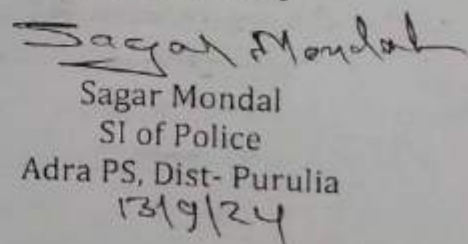 Sagar Mondal
Sagar Mondal
SI of Police
Adra PS, Dist- Purulia
13/9/24